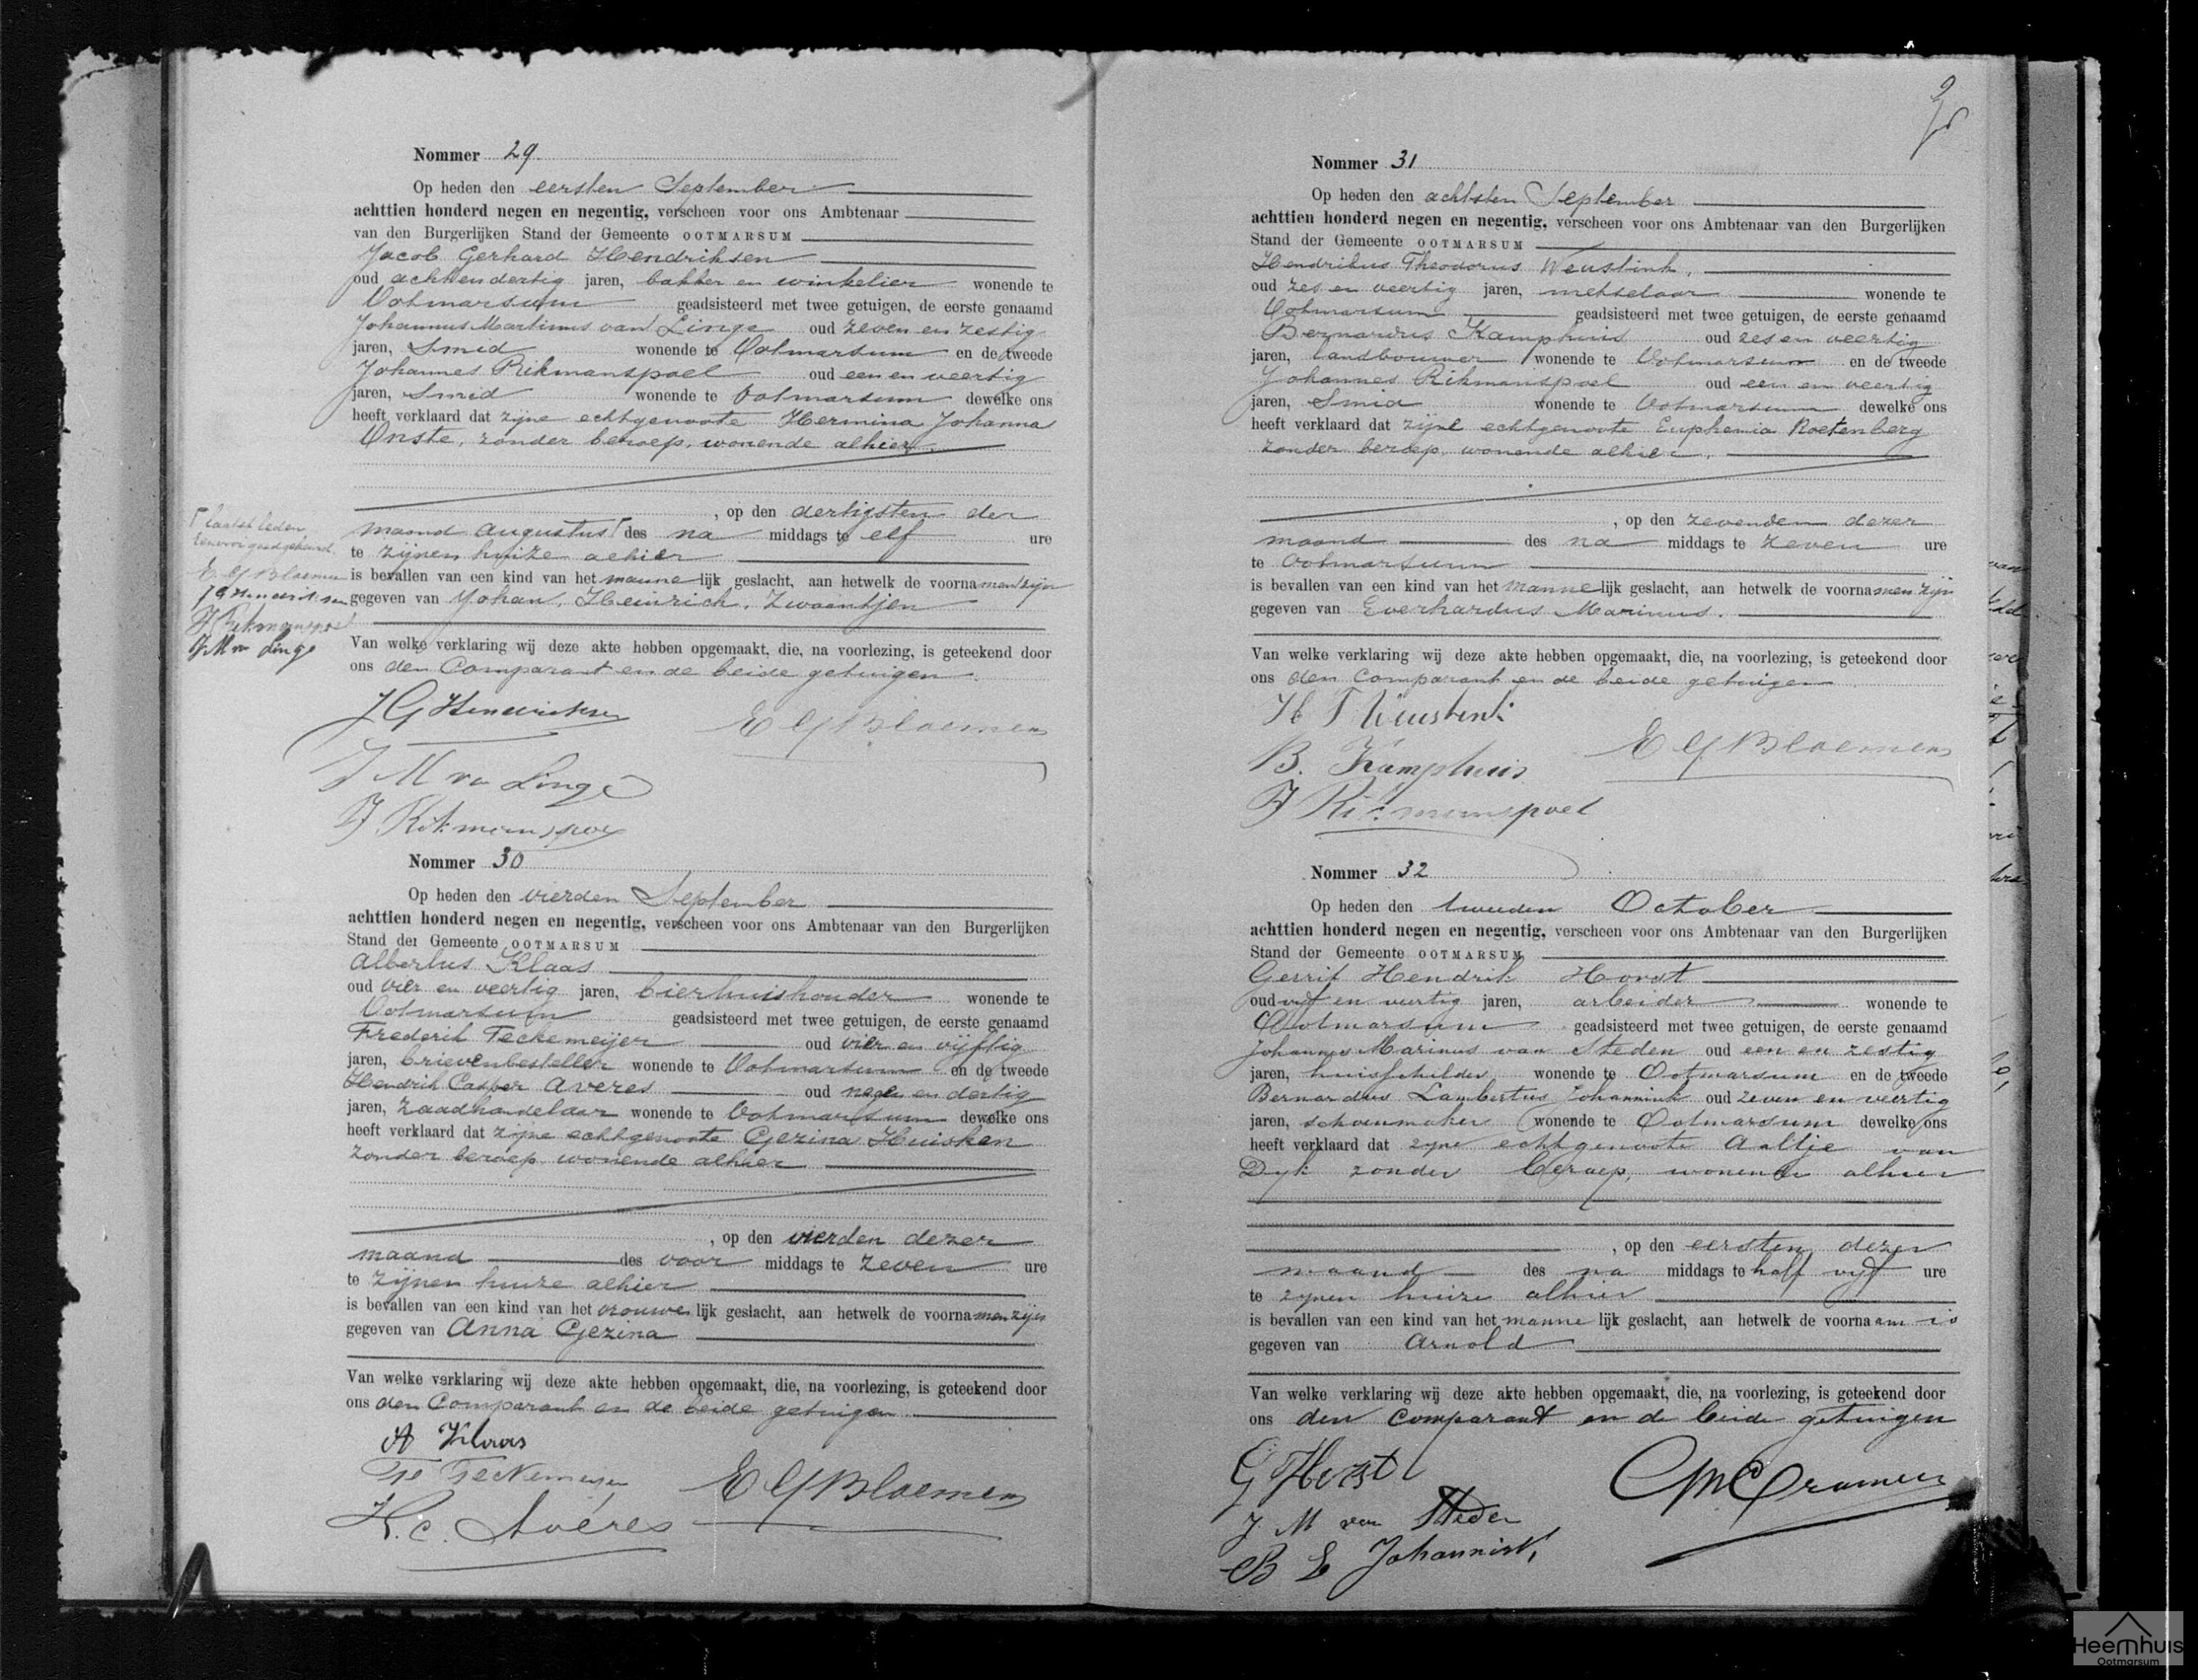 Nommer 29.
Op heden den eersten September
achttien honderd negen en negentig, verscheen voor ons Ambtenaar
van den Burgerlijken Stand der Gemeente OOTMARSUM
Jacob Gerhard Hendriksen
oud achtendertig jaren, bakker en winkelier wonende te
Ootmarsum geadsisteerd met twee getuigen, de eerste genaamd
Johannus Martinus van Linge oud zeven en zestig
jaren, Smid wonende te Ootmarsum en de tweede
Johannes Rikmanspoel oud een en veertig
jaren, Smid wonende te Ootmarsum dewelke ons
heeft verklaard dat zijne echtgenoote Hermina Johanna
Onste, zonder beroep, wonende alhier
, op den dertigsten der
maand augustus des na middags te elf ure
te zijnen huize alhier
is bevallen van een kind van het mannelijk geslacht, aan hetwelk de voornamen zijn
gegeven van Johan, Heinrich, Zwaantjen
Van welke verklaring wij deze akte hebben opgemaakt, die, na voorlezing, is geteekend door
ons den Comparant en de beide getuigen.
laatstleden
goedgekeurd
E G Bloemen
J G Hendriksen
J Rikmanspoel
J M v Linge
J G Hendriksen
E G Bloemen
J M v Linge
J Rikmanspoel
Nommer 30
Op heden den vierden September
achttien honderd negen en negentig, verscheen voor ons Ambtenaar van den Burgerlijken
Stand der Gemeente OOTMARSUM
Albertus Klaas
oud vier en veertig jaren, bierhuishouder wonende te
Ootmarsum geadsisteerd met twee getuigen, de eerste genaamd
Frederik Teckemeijer oud vier en vijftig
jaren, brievenbesteller wonende te Ootmarsum en de tweede
Hendrik Casper Averes oud negen en dertig
jaren, zaadhandelaar wonende te Ootmarsum dewelke ons
heeft verklaard dat zijne echtgenoote Gezina Huisken
zonder beroep wonende alhier
, op den vierden dezer
maand des voor middags te zeven ure
te zijnen huize alhier
is bevallen van een kind van het vrouwelijk geslacht, aan hetwelk de voornamen zijn
gegeven van Anna Gezina
Van welke verklaring wij deze akte hebben opgemaakt, die, na voorlezing, is geteekend door
ons den Comparant en de beide getuigen
A Klaas
Fre Teckemeijer
E G Bloemen
H. C. Avéres
Nommer 31
Op heden den achtsten September
achttien honderd negen en negentig, verscheen voor ons Ambtenaar van den Burgerlijken
Stand der Gemeente OOTMARSUM
Hendrikus Theodorus Weustink,
oud zes en veertig jaren, metselaar wonende te
Ootmarsum geadsisteerd met twee getuigen, de eerste genaamd
Bernardus Kamphuis oud zes en veertig
jaren, landbouwer wonende te Ootmarsum en de tweede
Johannes Rikmanspoel oud een en veertig
jaren, Smid wonende te Ootmarsum dewelke ons
heeft verklaard dat zijne echtgenoote Euphemia Roetenberg
zonder beroep, wonende alhier,
, op den zevenden dezer
maand des na middags te zeven ure
te Ootmarsum
is bevallen van een kind van het mannelijk geslacht, aan hetwelk de voornamen zijn
gegeven van Everhardus Marinus.
Van welke verklaring wij deze akte hebben opgemaakt, die, na voorlezing, is geteekend door
ons den Comparant en de beide getuigen
H T Weustink
E G Bloemen
B. Kamphuis
J Rikmanspoel
Nommer 32
Op heden den tweeden October
achttien honderd negen en negentig, verscheen voor ons Ambtenaar van den Burgerlijken
Stand der Gemeente OOTMARSUM
Gerrit Hendrik Horst
oud vijf en veertig jaren, arbeider wonende te
Ootmarsum geadsisteerd met twee getuigen, de eerste genaamd
Johannes Marinus van Steden oud een en zestig
jaren, huisschilder wonende te Ootmarsum en de tweede
Bernardus Lambertus Johannink oud zeven en veertig
jaren, schoenmaker wonende te Ootmarsum dewelke ons
heeft verklaard dat zijne echtgenoote Aaltje van
Dijk zonder beroep, wonende alhier
, op den eersten dezer
maand des na middags te half vijf ure
te zijnen huize alhier
is bevallen van een kind van het mannelijk geslacht, aan hetwelk de voornaam is
gegeven van Arnold
Van welke verklaring wij deze akte hebben opgemaakt, die, na voorlezing, is geteekend door
ons den comparant en de beide getuigen
G H Horst
J M van Steden
B L Johannink
Heemhuis
Ootmarsum